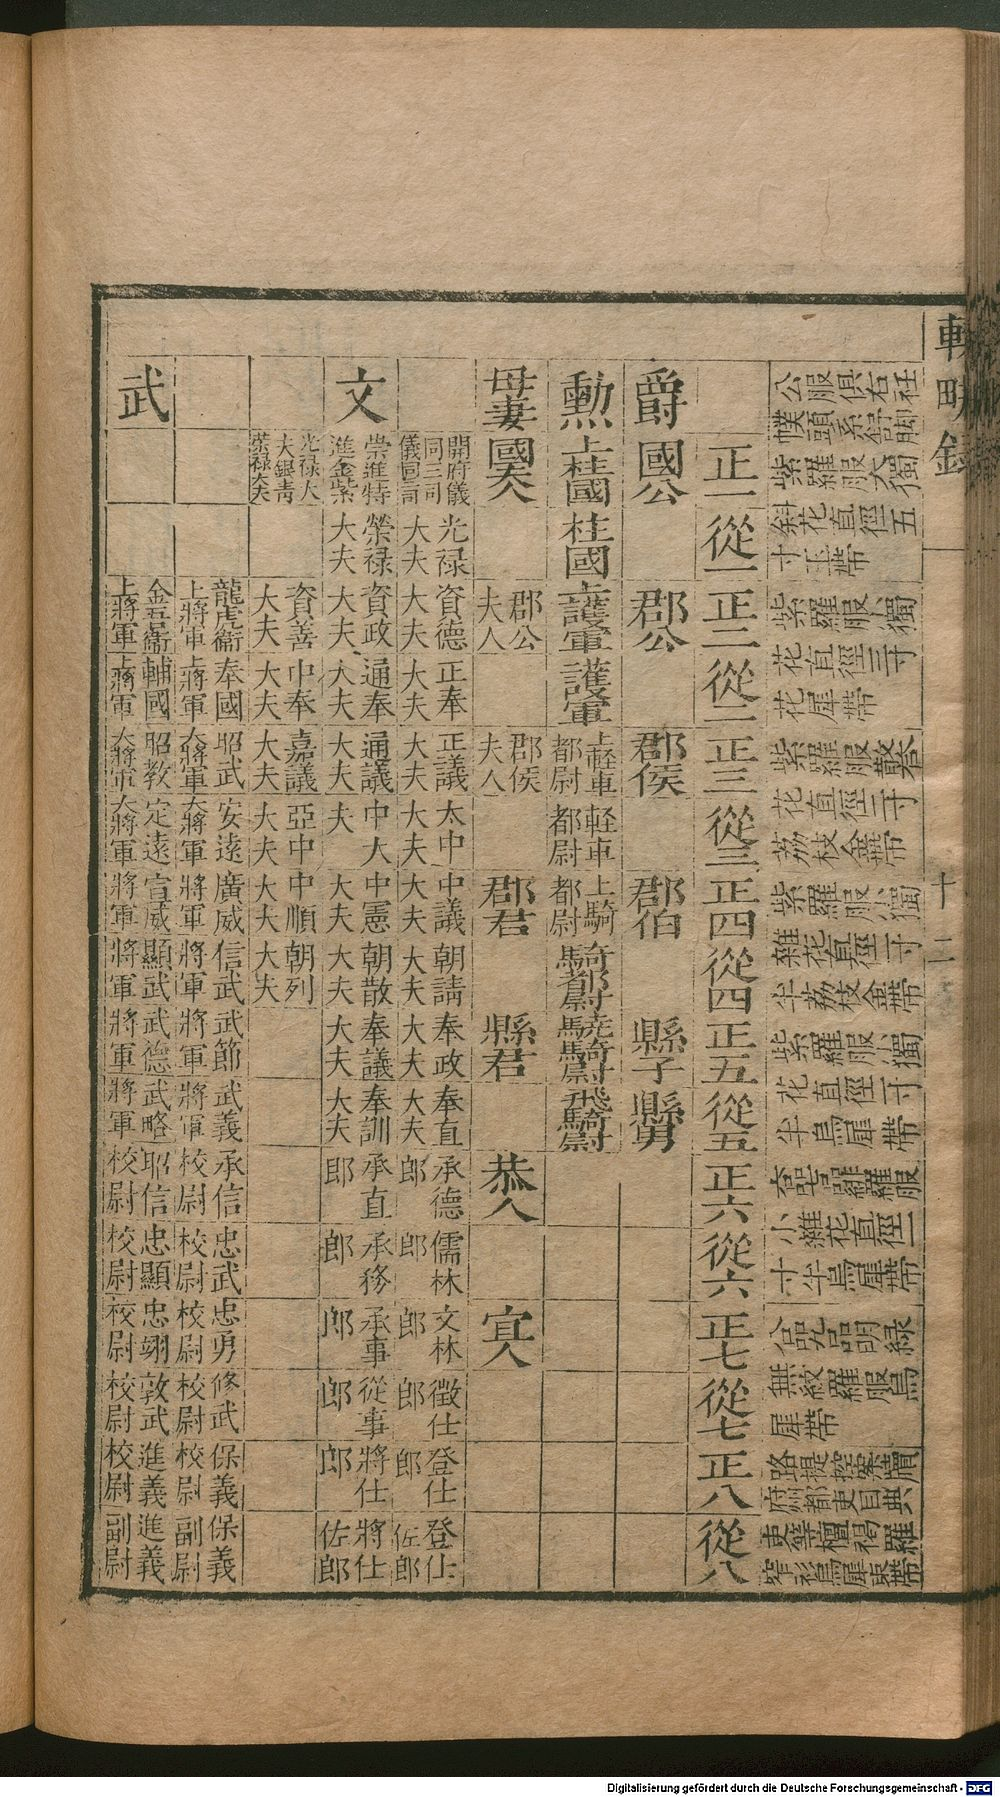 輟畊錄
十二
公服俱右衽
幞頭系舒脚
紫羅服大獨
斜花直徑五
寸玉帶
紫羅服小獨
花直徑三寸
花犀帶
紫羅服散答
花直徑二寸
荔枝金帶
紫羅服小獨
雜花直徑寸
半荔枝金帶
紫羅服小獨
花直徑寸
半烏犀帶
小雜花直徑一
寸半烏犀帶
無紋羅服烏
犀帶
路提控案牘
府都吏目典
吏等檀褐羅
窄衫烏犀束帶
正一
從一
正二
從二
正三
從三
正四
從四
正五
從五
正六
從六
正七
從七
正八
從八
爵
國公
郡公
郡侯
郡伯
縣子
縣男
勲
上柱國
柱國
上護軍
護軍
上輕車都尉
軽車都尉
上騎都尉
騎都尉
驍騎尉
飛騎尉
母妻
國夫人
郡公夫人
郡侯夫人
郡君
縣君
恭人
宜人
開府儀
同三司
儀同三司
光禄大夫
資德大夫
正奉大夫
正議大夫
太中大夫
中議大夫
朝請大夫
奉政大夫
奉直大夫
承德郎
儒林郎
文林郎
徵仕郎
登仕郎
登仕佐郎
文
崇進特
進金紫
榮禄大夫
資政大夫
通奉大夫
通議大夫
中大夫
中憲大夫
朝散大夫
奉議大夫
奉訓大夫
承直郎
承務郎
承事郎
從事郎
將仕郎
將仕佐郎
光禄大
夫銀青
榮禄大夫
資善大夫
中奉大夫
嘉議大夫
亞中大夫
中順大夫
朝列大夫
龍虎衛上將軍
奉國上將軍
昭武大將軍
安遠大將軍
廣威將軍
信武將軍
武節將軍
武義將軍
承信校尉
忠武校尉
忠勇校尉
修武校尉
保義校尉
保義副尉
武
金吾衛上將軍
輔國上將軍
昭毅大將軍
定遠大將軍
宣威將軍
顯武將軍
武德將軍
武略將軍
昭信校尉
忠顯校尉
忠翊校尉
敦武校尉
進義校尉
進義副尉
Digitalisierung gefördert durch die Deutsche Forschungsgemeinschaft - DFG